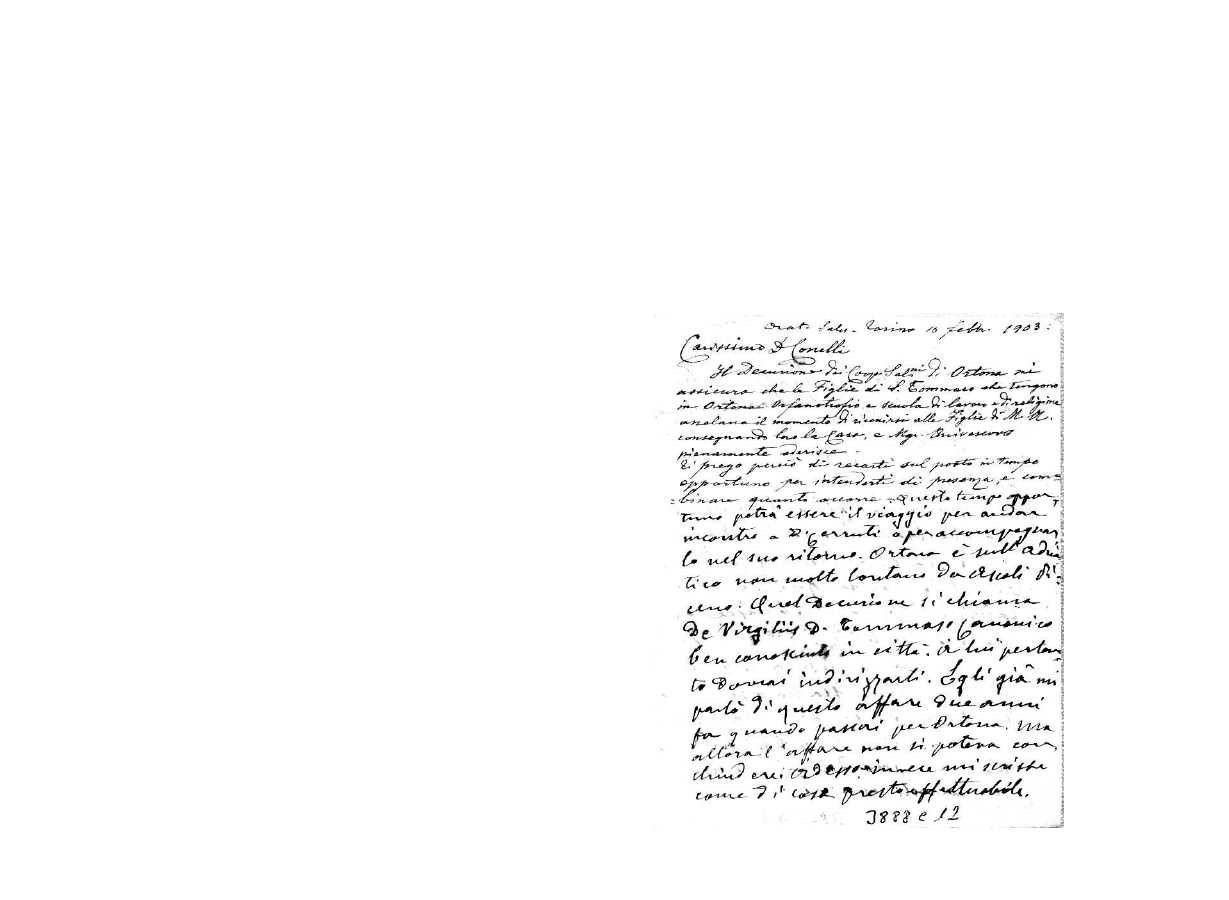 Orat. Sales. Torino 10 febbr. 1903:
Carissimo D Conelli
Il Decurione dei Coop. Sal.ni di Ortona mi
assicura che le Figlie di S. Tommaso che tengono
in Ortona Orfanotrofio e scuola di lavoro e di religione
anelano il momento di riunirsi alle Figlie di M. A.
consegnando loro la Casa, e Mgr. Arcivescovo
pienamente aderisce.
Ti prego perciò di recarti sul posto in tempo
opportuno per intenderti di presenza, e com=
=binare quanto occorre. Questo tempo oppor,
tuno potrà essere il viaggio per andar
incontro a D. Cerruti o per accompagnar
lo nel suo ritorno. Ortona è sull'adria
tico non molto lontano da Ascoli Pi-
ceno. Quel Decurione si chiama
De Virgiliis D. Tommaso Canonico
ben conosciuto in città. A lui pertan
to dovrai indirizzarti. Egli già mi
parlò di questo affare due anni
fa quando passai per Ortona. Ma
allora l'affare non si poteva con
chiudere; adesso invece mi scrisse
come di cosa presto effettuabile.
3888 C 12